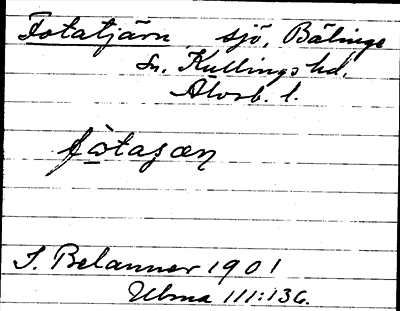 Fotatjärn sjö, Bälinge
Sn. Kullings hd.
Älvsb. l.
fòtaʃæn
S. Belanner 1901
Ulma 111:136.